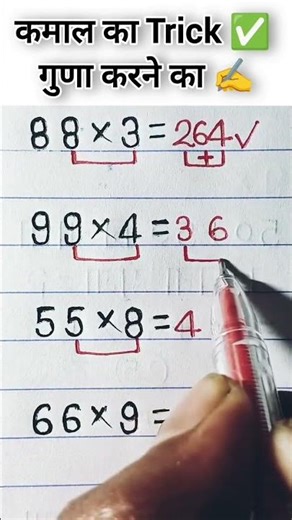 कमाल का Trick ✅
गुणा करने का ✍️
88×3=264✓
+
99×4=36
55×8=4
66×9=